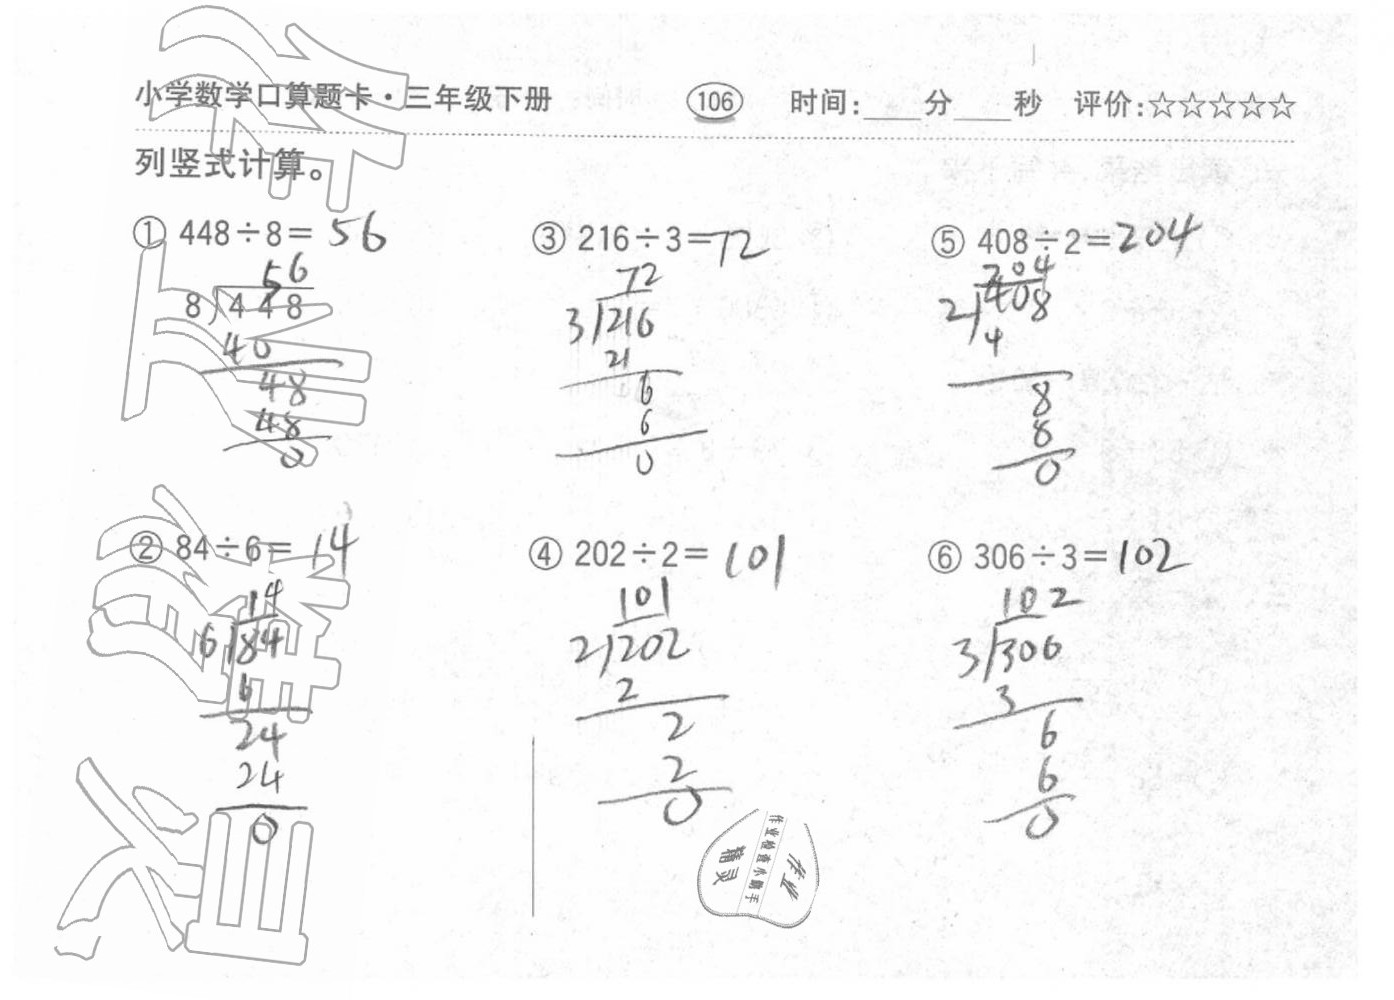 小学数学口算题卡·三年级下册 106 时间:____分____秒 评价:☆☆☆☆☆
列竖式计算。
① 448÷8= 56
56
8 448
40
48
48
0
② 84÷6= 14
14
6 84
6
24
24
0
③ 216÷3=72
72
3 216
21
6
6
0
④ 202÷2= 101
101
2 202
2
2
2
0
⑤ 408÷2=204
204
2 408
4
8
8
0
⑥ 306÷3=102
102
3 306
3
6
6
0
作业
作业检查小助手
精灵